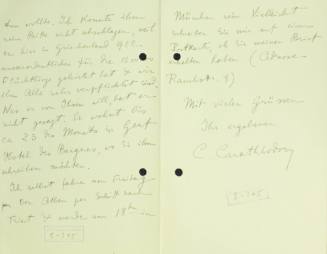 ihm wollte. Ich konnte ihm
seine Bitte nicht abschlagen, weil
er hier in Griechenland sich
ausserordentlich für die
Flüchtlinge gemüht hat & wir
ihm Alle sehr verpflichtet sind.
Was er von Ihnen will, hat er
nicht gesagt. Er wohnt bis
ca 25 des Monats in Genf
Hotel des Bergues, wo Sie ihm
schreiben möchten.
Ich selbst fahre von
von Athen per Schiff nach
Triest & werde am 18ten in
5-705
München sein. Vielleicht
schreiben Sie mir auf einer
Postkarte, ob Sie meinen Brief
erhalten haben (Adresse
Rauchstr. 8)
Mit vielen Grüssen
Ihr ergebener
C. Carathéodory
5-705